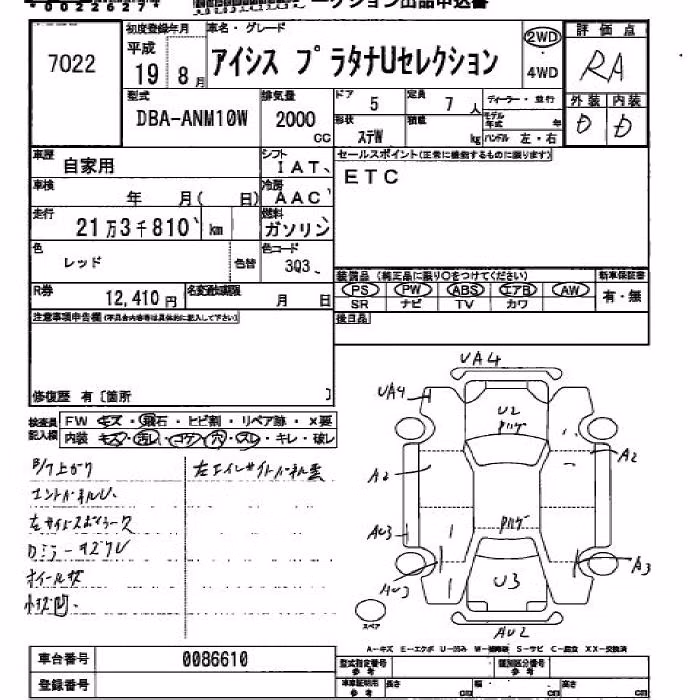 7022
初度登録年月
平成
19 8月
車名・グレード
アイシス プラタナUセレクション
2WD
・
4WD
評価点
RA
外装 内装
D D
型式
DBA-ANM10W
排気量
2000
CC
ドア 5
定員 7人
ディーラー・並行
形状 ステW
積載 kg
モデル年式 年
ハンドル 左・右
車歴 自家用
シフト IAT
セールスポイント(正常に機能するものに限ります)
ETC
車検 年 月( 日)
冷房 AAC
走行 21万3千810 km
燃料 ガソリン
色 レッド
色替
色コード 3Q3
装備品 (純正品に限り○をつけてください)
新車保証書
PS PW ABS エアB AW
SR ナビ TV カワ
有・無
R券 12,410円
名変期限 月 日
後日品
注意事項申告欄(不具合内容等は具体的に記入して下さい)
修復歴 有〔箇所 〕
検査員記入欄
FW キズ・飛石・ヒビ割・リペア跡・×要
内装 キズ・汚レ・コゲ・穴・スレ・キレ・破レ
UA4
UA4
U2
ハゲ
A2
A2
AU3
ハゲ
AU3
A3
U3
AU2
スペア
A-キズ E-エクボ U-凹み W-補修跡 S-サビ C-腐食 XX-交換済
車台番号 0086610
登録番号
型式指定番号 参考
類別区分番号 参考
車庫証明用 参考
長さ cm
幅 cm
高さ cm